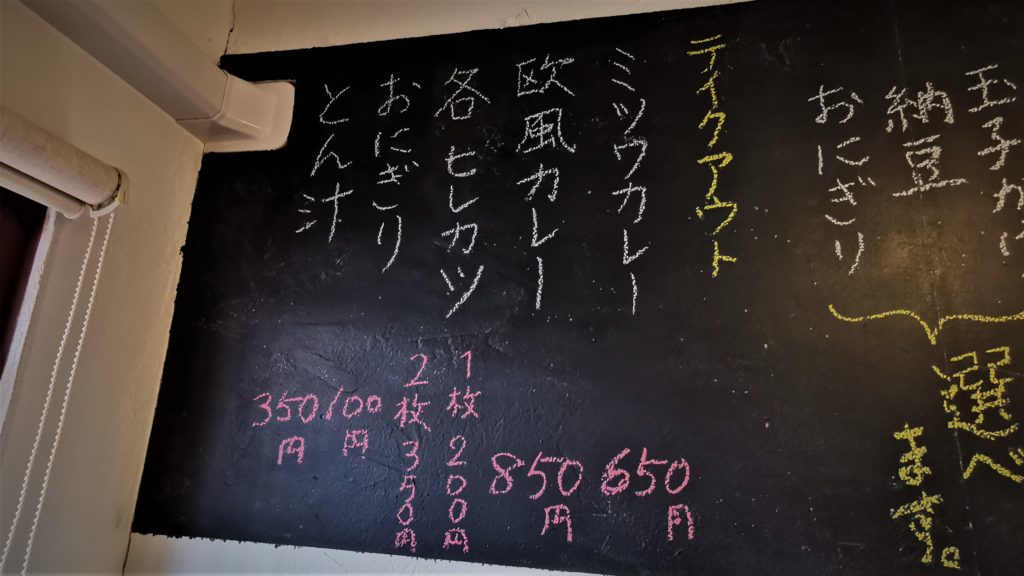 玉子か
納豆
おにぎり
選べ
ます。
テイクアウト
ミツウカレー 650円
欧風カレー 850円
各ヒレカツ 1枚200円
2枚350円
おにぎり 100円
とん汁 350円